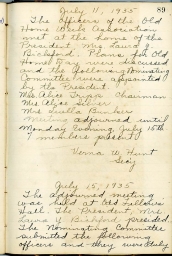 89
July 11, 1935
The officers of the Old
Home Week Association
met at the home of the
President, Mrs. Laura J.
Bickford. Plans for Old
Home Day were discussed
and the following Nominating
Committee were appointed
by the President.
Mrs. Alice Tryon Chairman
Mrs. Elger Silver
Mrs. Bunker
Meeting adjourned until
Monday evening, July 15th
7 members present.
Verna W. Hunt
Secy
July 15, 1935
The adjourned meeting
was held at Odd Fellows
Hall. The President, Mrs.
Laura J. Bickford, presided.
The Nominating Committee
submitted the following
officers and they were duly